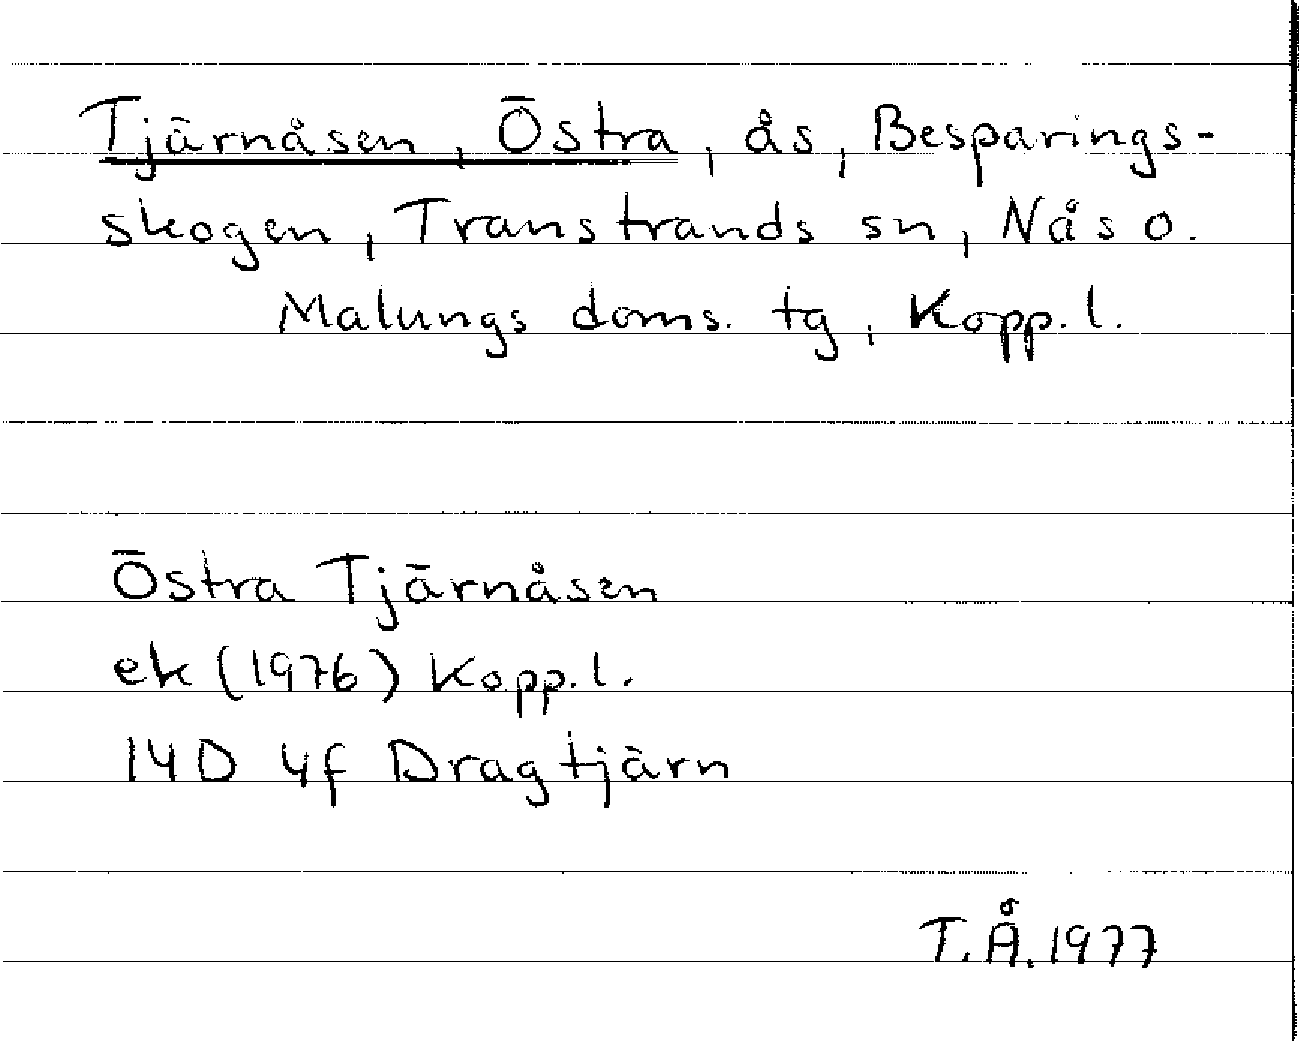 Tjärnåsen, Östra, ås, Besparings-
skogen, Transtrands sn, Nås o.
Malungs doms. tg, Kopp. l.
Östra Tjärnåsen
ek (1976) Kopp. l.
14D 4f Dragtjärn
T.Å. 1977